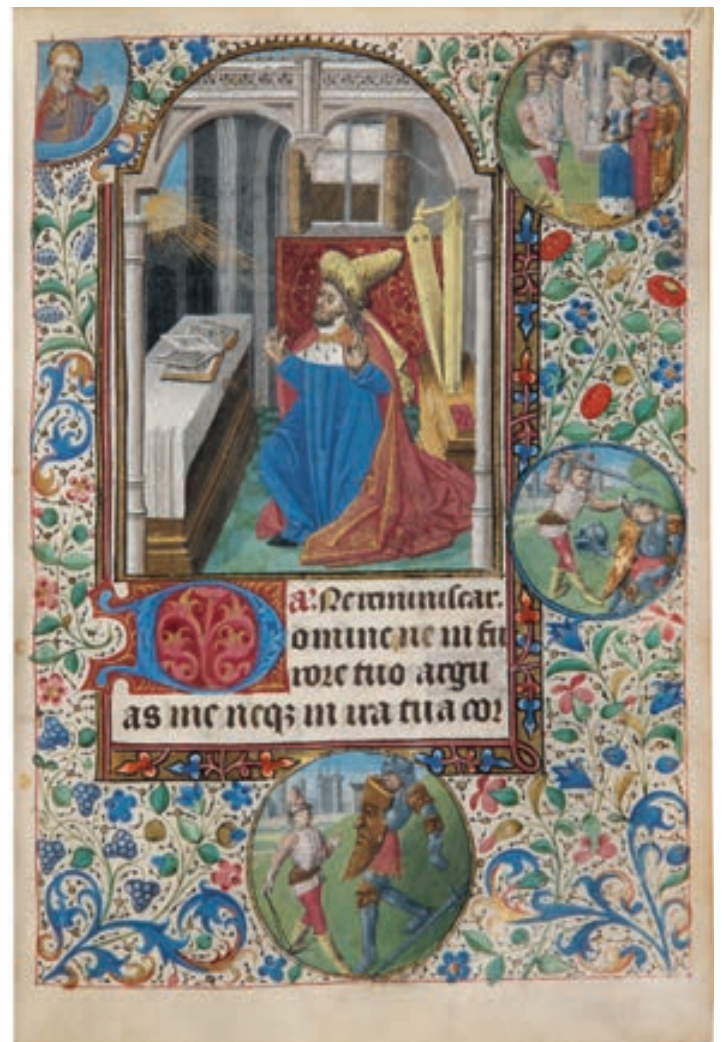 a. Ne reminiscar.
Domine ne in fu
rore tuo argu
as me neqz in ira tua cor